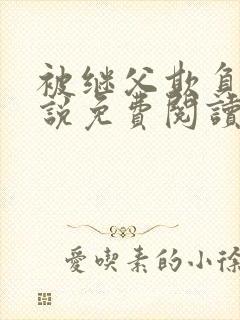 被继父欺負
說免費閱讀
愛喫素的小徐